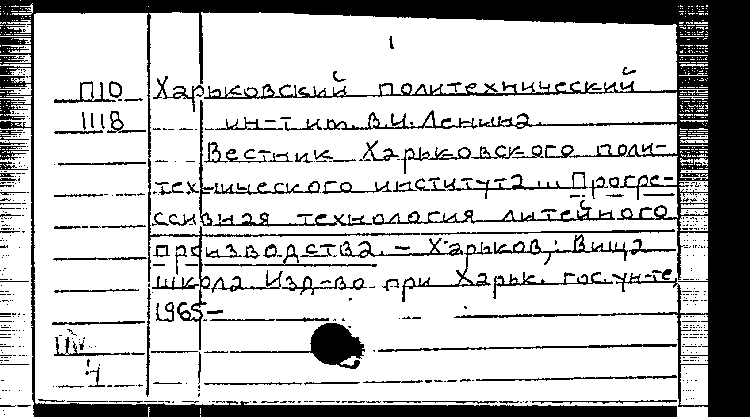 1
П10 Харьковский политехнический
1118 ин-т им. В.И. Ленина.
Вестник Харьковского поли-
технического института ... Прогре-
ссивная технология литейного
производства. - Харьков,: Вища
школа. Изд-во при Харьк. гос. ун-те,
1965-
4